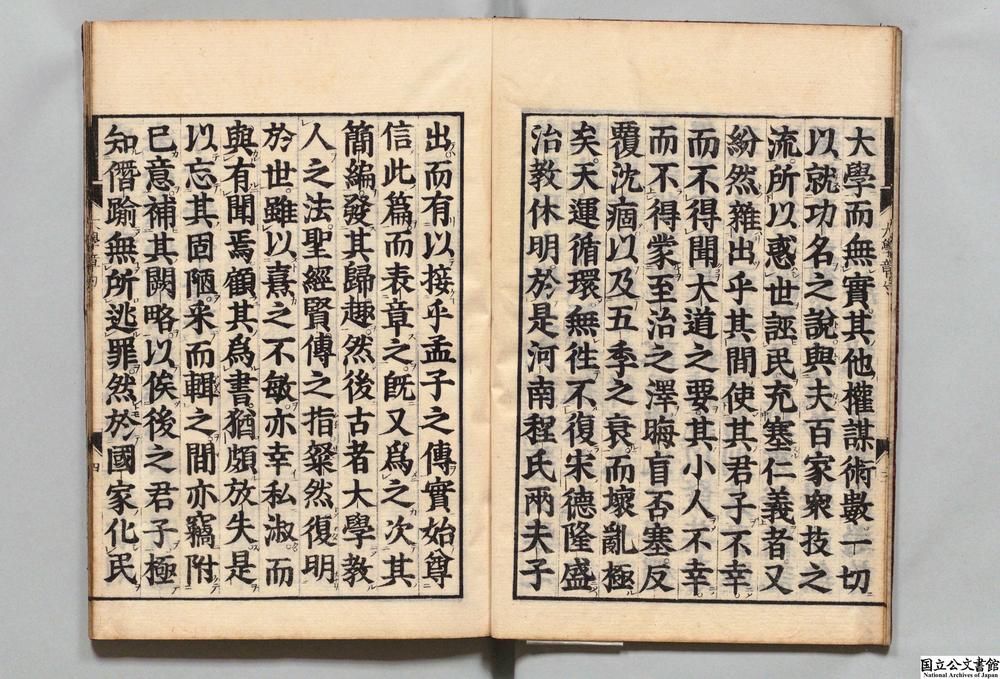 大學而無實其他權謀術數一切
以就功名之說與夫百家衆技之
流所以惑世誣民充塞仁義者又
紛然雜出乎其間使其君子不幸
而不得聞大道之要其小人不幸
而不得蒙至治之澤晦盲否塞反
覆沈痼以及五季之衰而壞亂極
矣天運循環無徃不復宋德隆盛
治教休明於是河南程氏兩夫子
出而有以接乎孟子之傳實始尊
信此篇而表章之旣又爲之次其
簡編發其歸趣然後古者大學教
人之法聖經賢傳之指粲然復明
於世雖以熹之不敏亦幸私淑而
與有聞焉顧其爲書猶頗放失是
以忘其固陋采而輯之間亦竊附
已意補其闕略以俟後之君子極
知僭踰無所逃罪然於國家化民
四
国立公文書館
National Archives of Japan